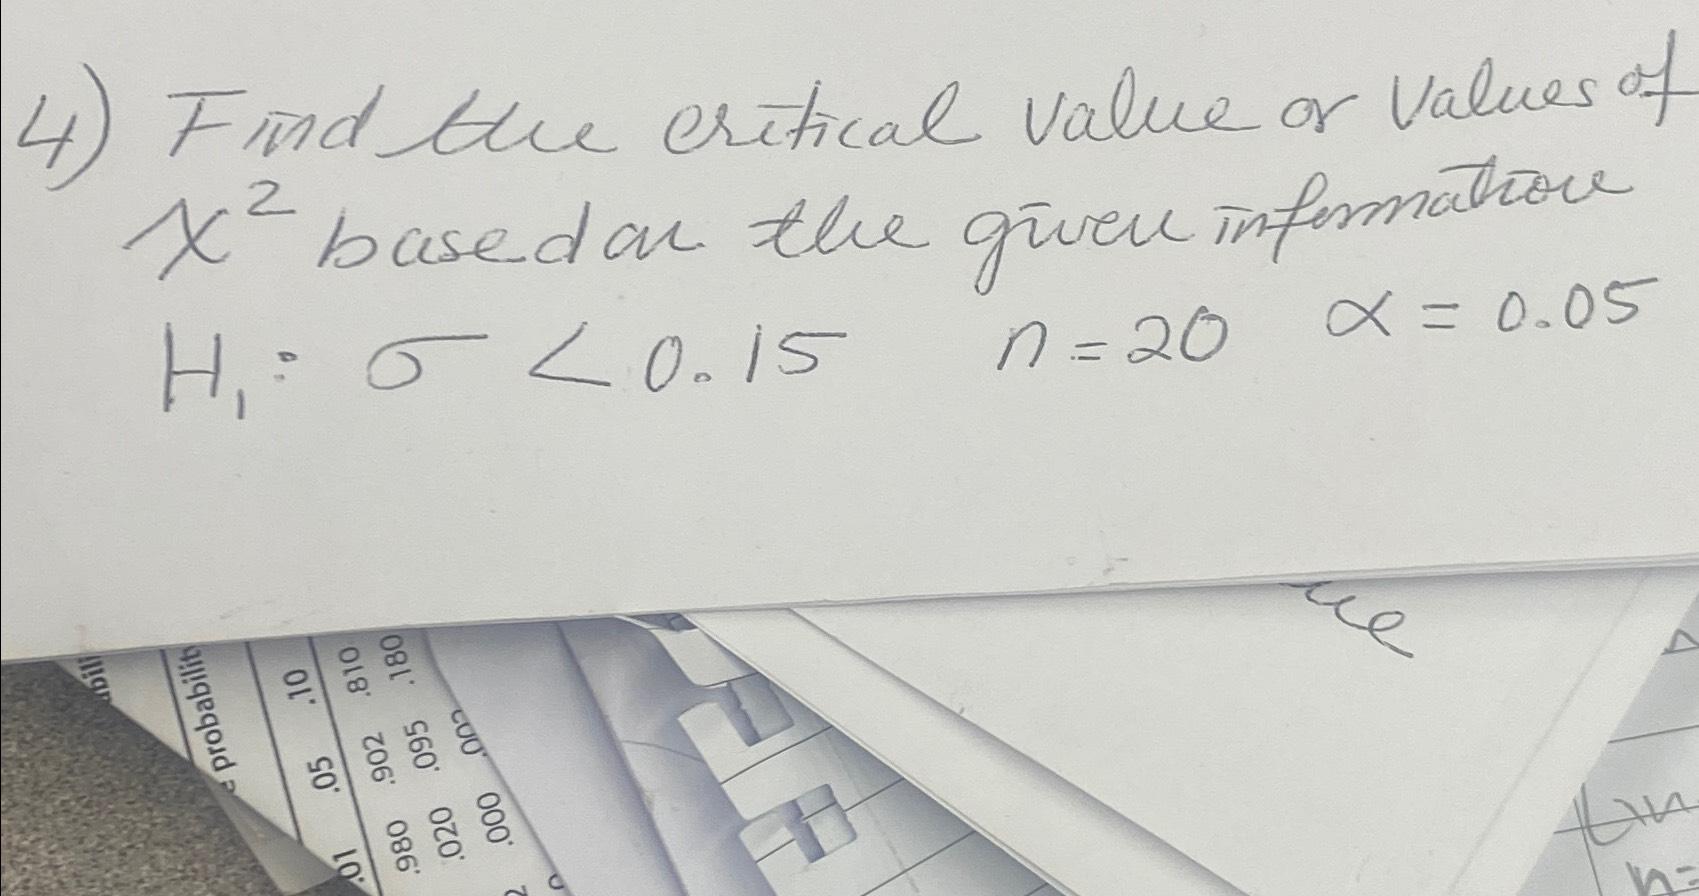 4) Find the critical value or values of
x² based on the given information
H₁: σ < 0.15 n = 20 α = 0.05
ue
probabilit
.01 .05 .10
.980 .902 .810
.020 .095 .180
.000
n=